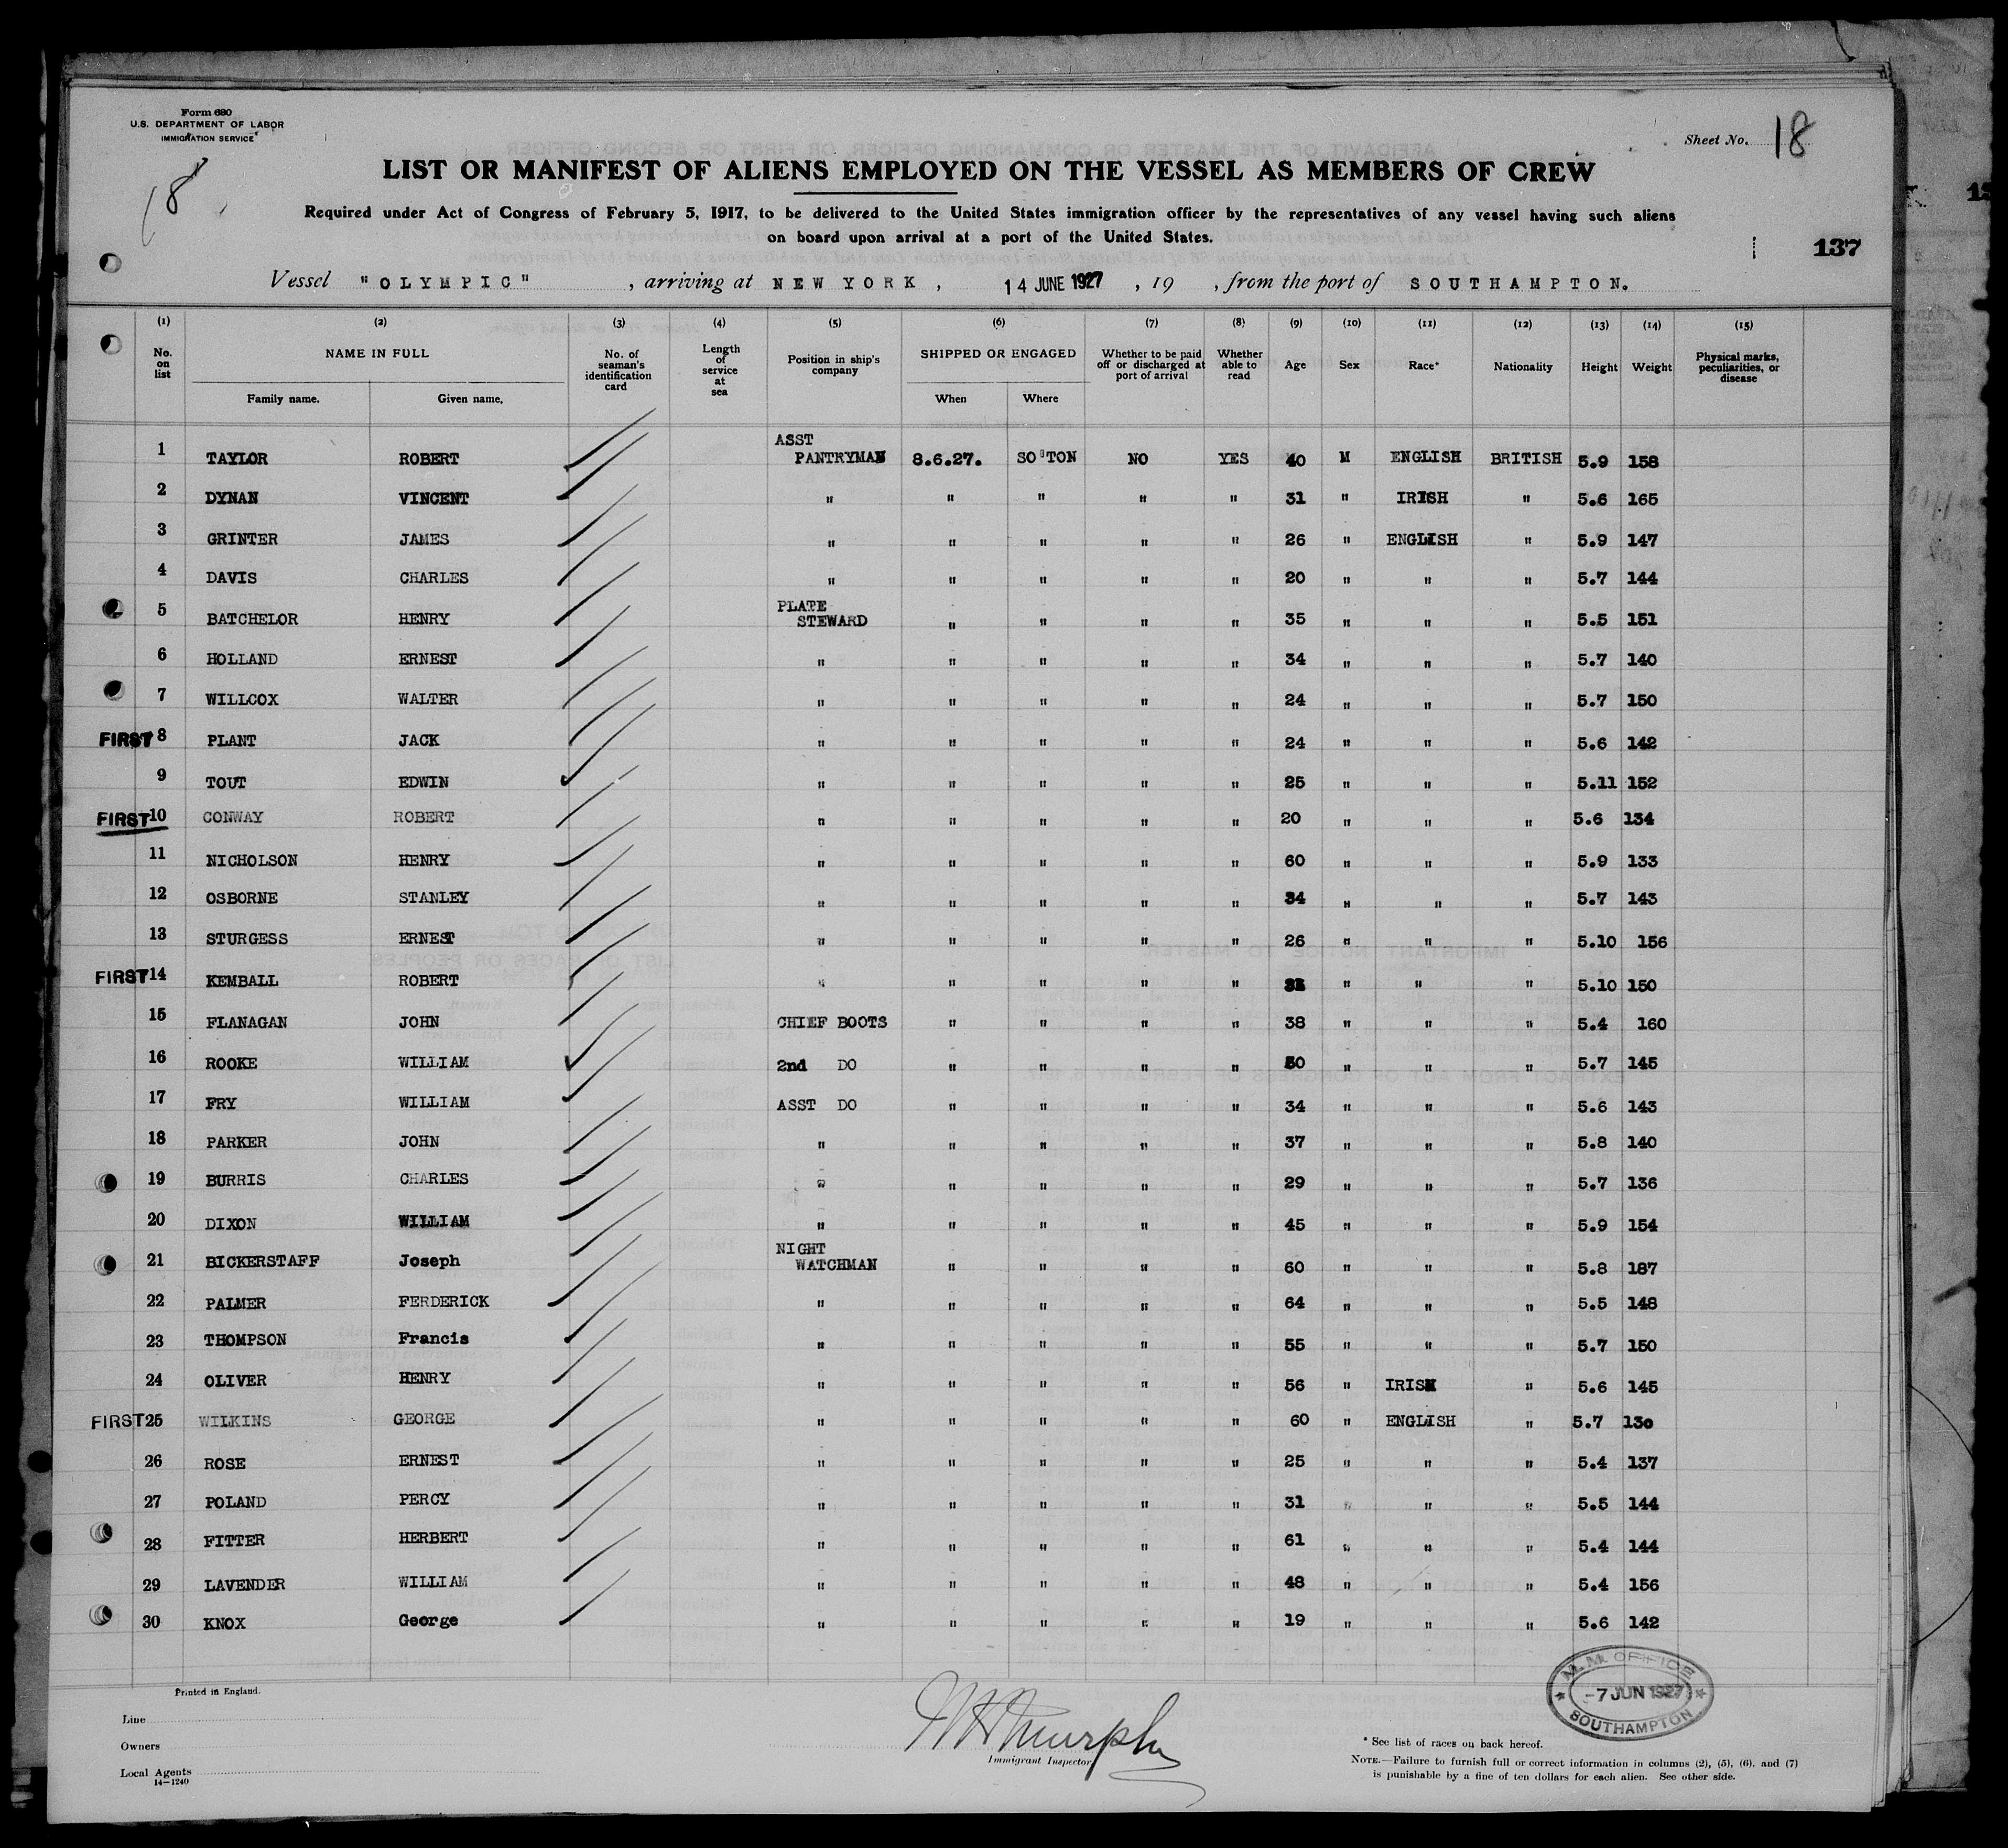 Form 680
U.S. DEPARTMENT OF LABOR
IMMIGRATION SERVICE
Sheet No. 18
18
LIST OR MANIFEST OF ALIENS EMPLOYED ON THE VESSEL AS MEMBERS OF CREW
Required under Act of Congress of February 5, 1917, to be delivered to the United States immigration officer by the representatives of any vessel having such aliens
on board upon arrival at a port of the United States.
137
Vessel "OLYMPIC" , arriving at NEW YORK , 14 JUNE 1927 , 19 , from the port of SOUTHAMPTON.
(1) (2) (3) (4) (5) (6) (7) (8) (9) (10) (11) (12) (13) (14) (15)
No. on list NAME IN FULL No. of seaman's identification card Length of service at sea Position in ship's company SHIPPED OR ENGAGED Whether to be paid off or discharged at port of arrival Whether able to read Age Sex Race* Nationality Height Weight Physical marks, peculiarities, or disease
Family name. Given name. When Where
1 TAYLOR ROBERT ASST PANTRYMAN 8.6.27. SO'TON NO YES 40 M ENGLISH BRITISH 5.9 158
2 DYNAN VINCENT " " " " " 31 " IRISH " 5.6 165
3 GRINTER JAMES " " " " " 26 " ENGLISH " 5.9 147
4 DAVIS CHARLES " " " " " 20 " " " 5.7 144
5 BATCHELOR HENRY PLATE STEWARD " " " " 35 " " " 5.5 151
6 HOLLAND ERNEST " " " " " 34 " " " 5.7 140
7 WILLCOX WALTER " " " " " 24 " " " 5.7 150
FIRST 8 PLANT JACK " " " " " 24 " " " 5.6 142
9 TOUT EDWIN " " " " " 25 " " " 5.11 152
FIRST 10 CONWAY ROBERT " " " " " 20 " " " 5.6 134
11 NICHOLSON HENRY " " " " " 60 " " " 5.9 133
12 OSBORNE STANLEY " " " " " 34 " " " 5.7 143
13 STURGESS ERNEST " " " " " 26 " " " 5.10 156
FIRST 14 KEMBALL ROBERT " " " " " " " " 5.10 150
15 FLANAGAN JOHN CHIEF BOOTS " " " " 38 " " " 5.4 160
16 ROOKE WILLIAM 2nd DO " " " " 50 " " " 5.7 145
17 FRY WILLIAM ASST DO " " " " 34 " " " 5.6 143
18 PARKER JOHN " " " " " 37 " " " 5.8 140
19 BURRIS CHARLES " " " " " 29 " " " 5.7 136
20 DIXON WILLIAM " " " " " 45 " " " 5.9 154
21 BICKERSTAFF Joseph NIGHT WATCHMAN " " " " 60 " " " 5.8 187
22 PALMER FERDERICK " " " " " 64 " " " 5.5 148
23 THOMPSON Francis " " " " " 55 " " " 5.7 150
24 OLIVER HENRY " " " " " 56 " IRISH " 5.6 145
FIRST 25 WILKINS GEORGE " " " " " 60 " ENGLISH " 5.7 130
26 ROSE ERNEST " " " " " 25 " " " 5.4 137
27 POLAND PERCY " " " " " 31 " " " 5.5 144
28 FITTER HERBERT " " " " " 61 " " " 5.4 144
29 LAVENDER WILLIAM " " " " " 48 " " " 5.4 156
30 KNOX George " " " " " 19 " " " 5.6 142
M.M. OFFICE
-7 JUN 1927
SOUTHAMPTON
Printed in England.
Line
Owners
Local Agents
14-1240
Murphy
Immigrant Inspector
* See list of races on back hereof.
NOTE.—Failure to furnish full or correct information in columns (2), (5), (6), and (7)
is punishable by a fine of ten dollars for each alien. See other side.